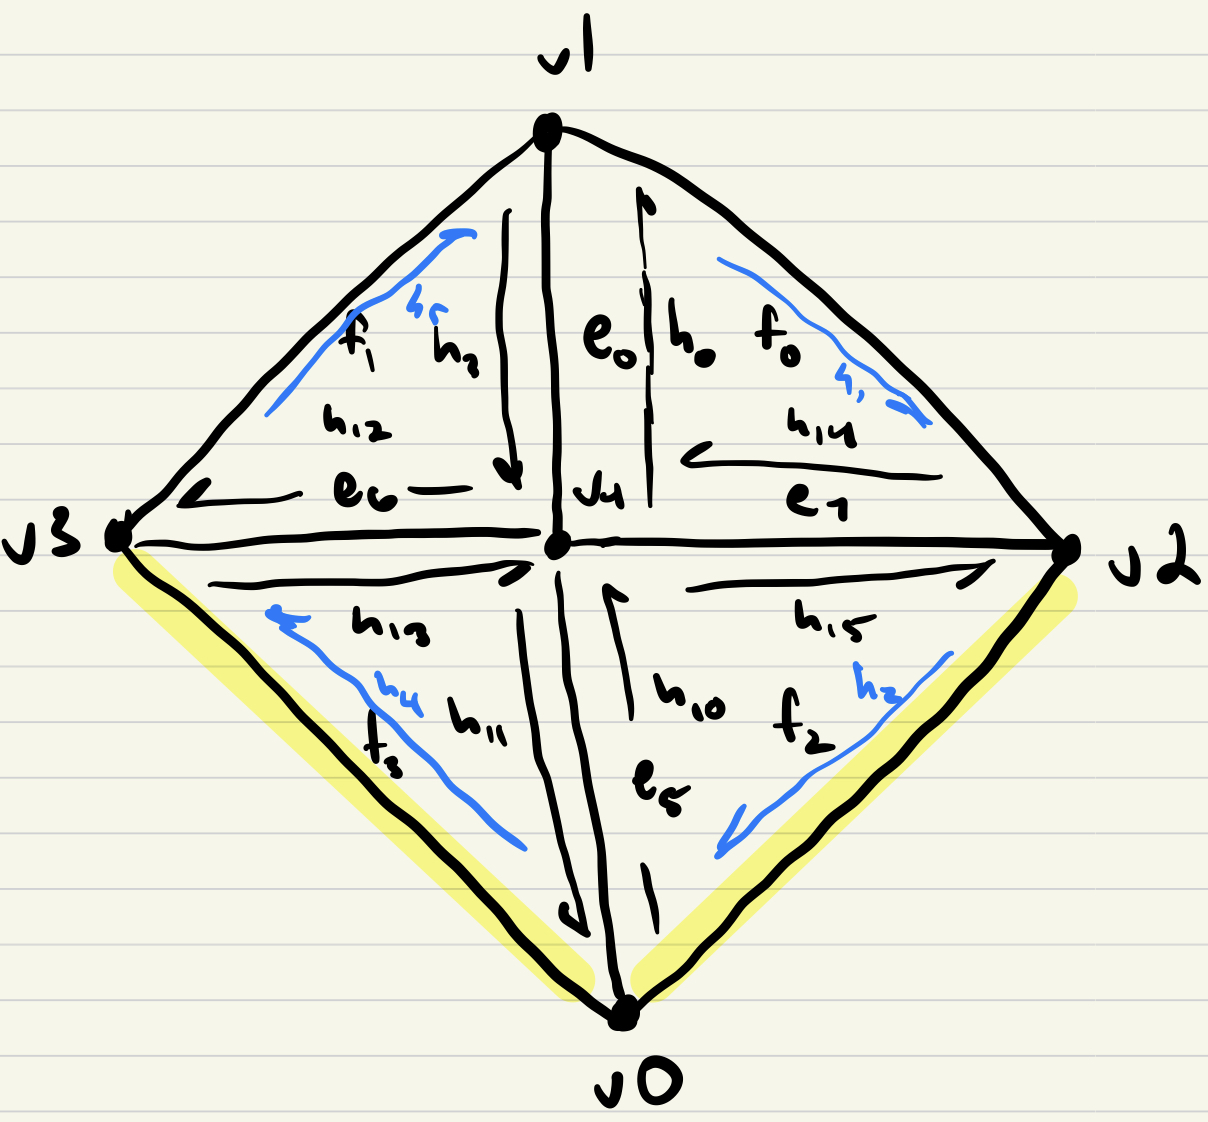 v1
h5
f1 h3 e0 h0 f0
h1
h12 h14
e6 v4 e7
v3 v2
h13 h15
h4 h11 h10 f2 h2
f3 e5
v0